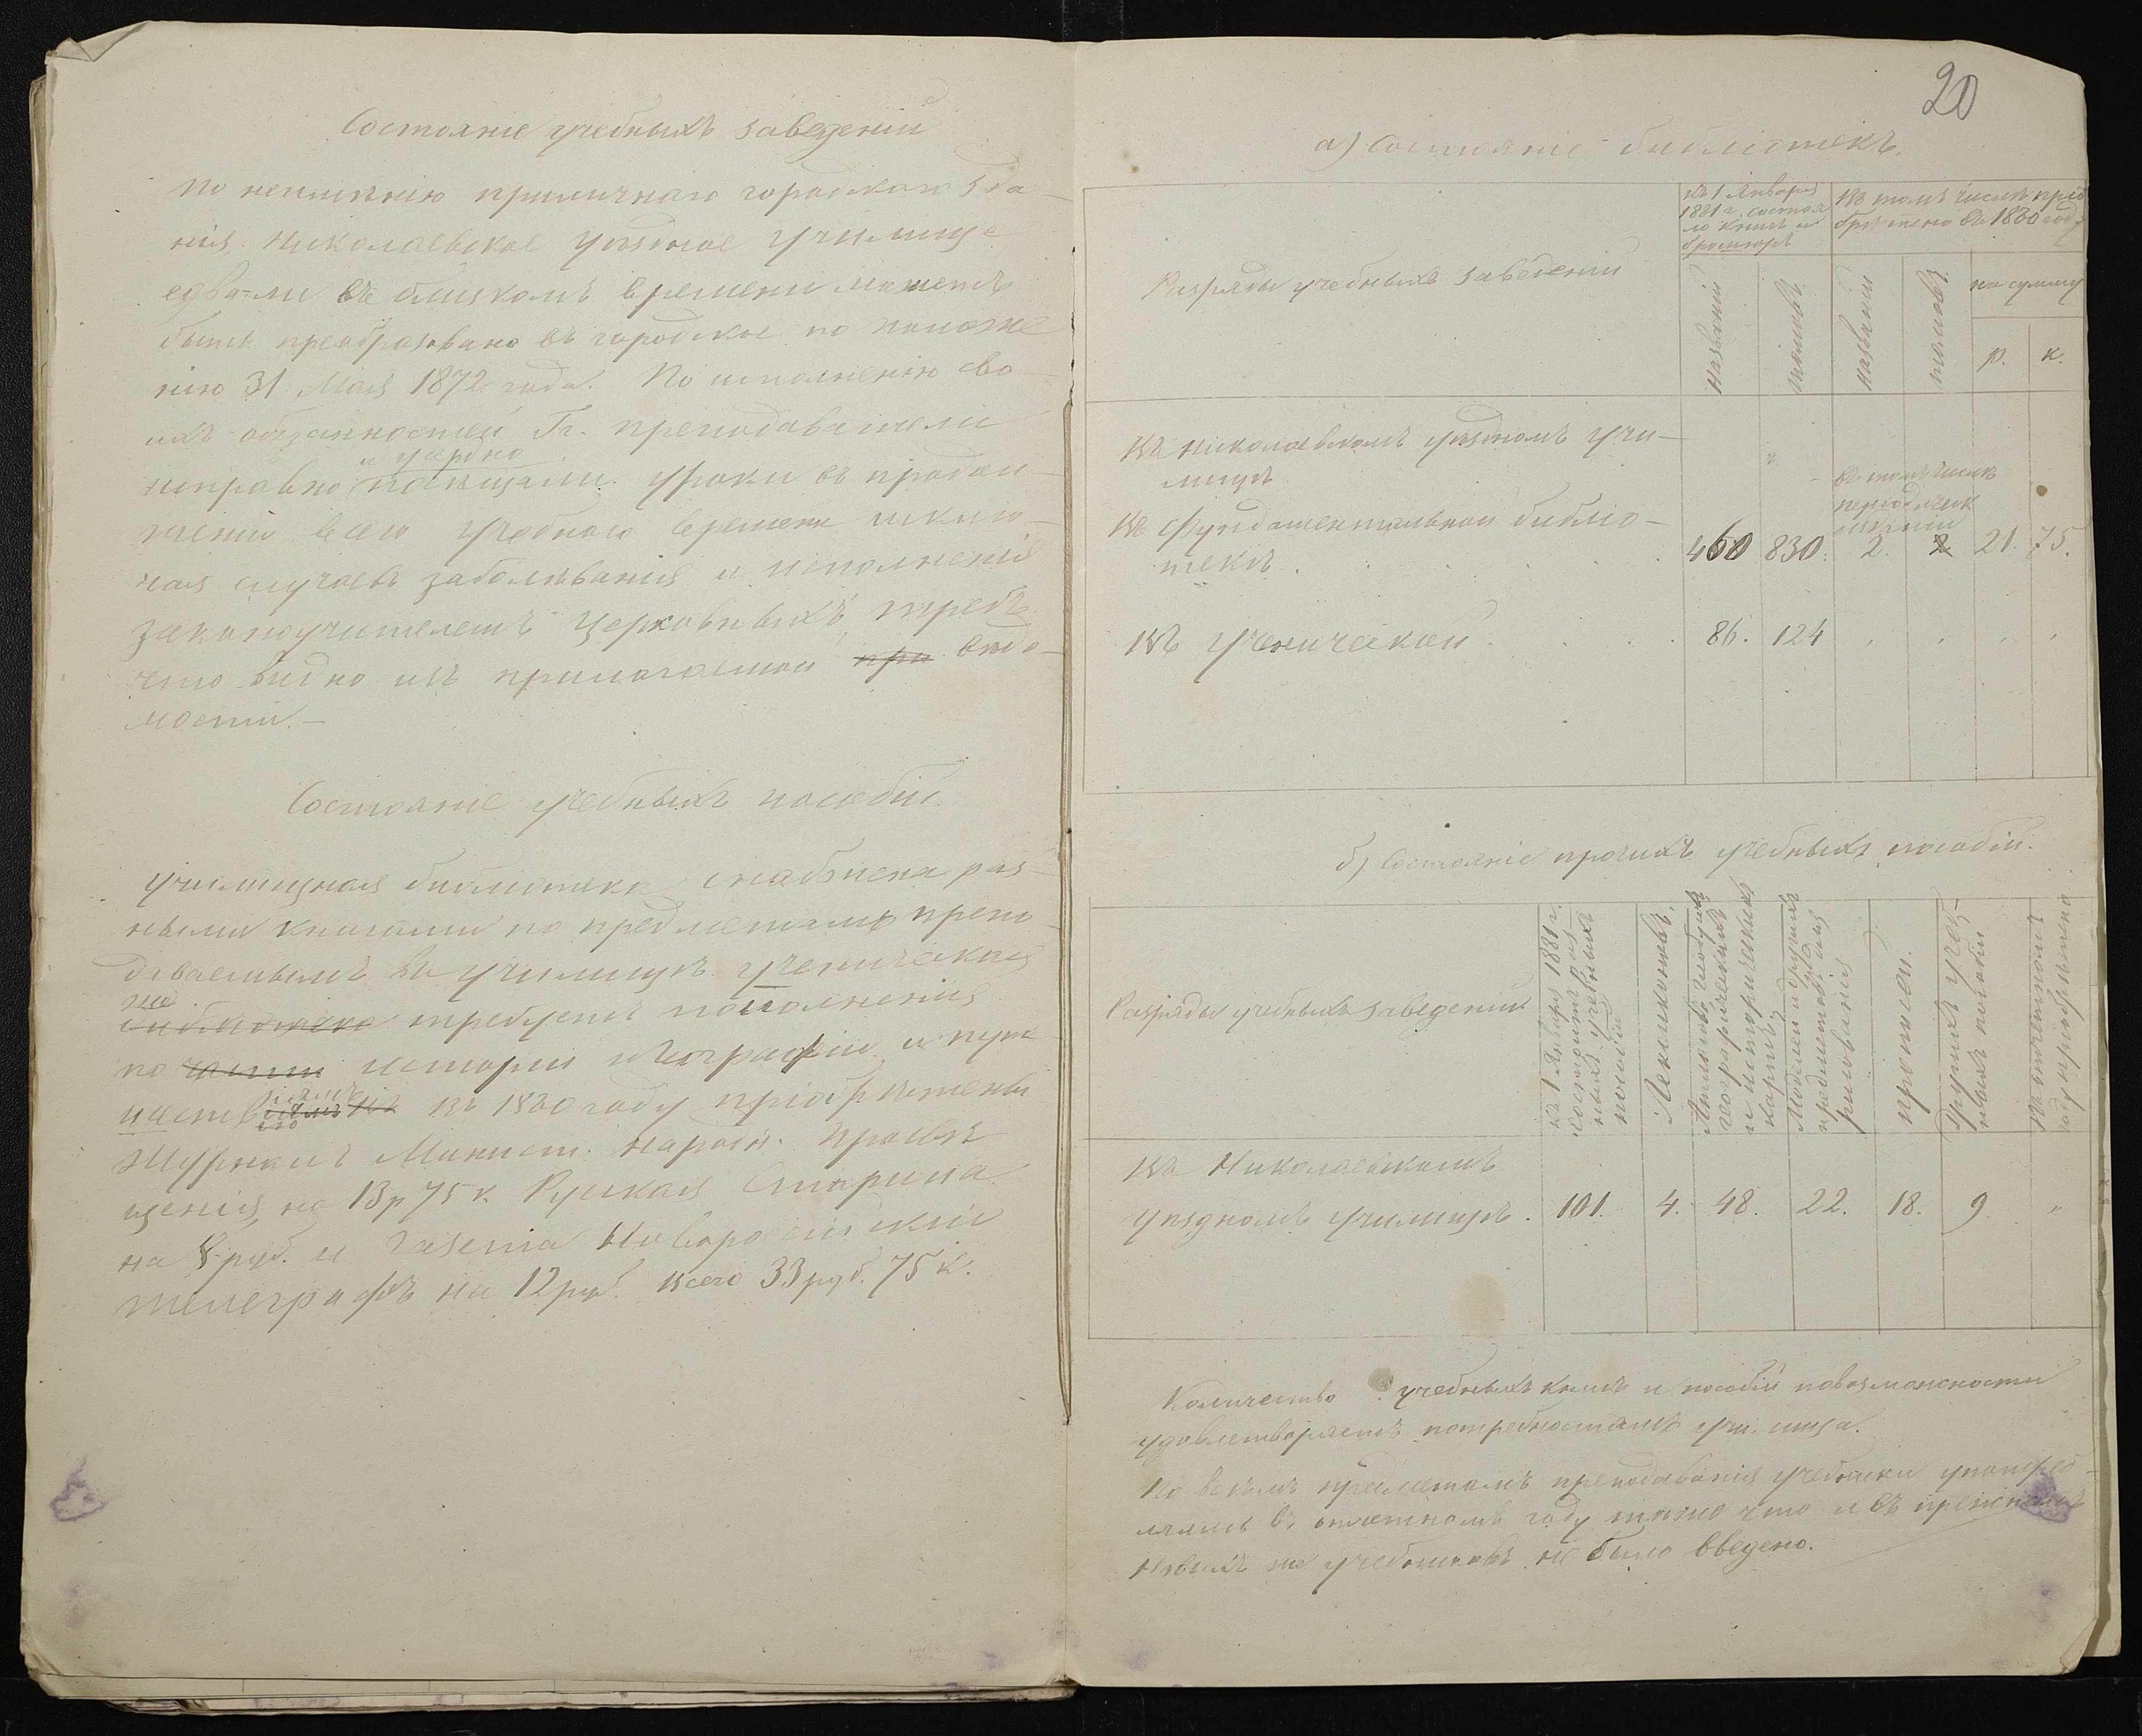 Состоянiе учебныхъ заведенiй
По неименiю приличнаго городскаго зда-
нiя, Николаевское Уѣздное Училище
едва-ли въ близкомъ времени можетъ
быть преобразовано въ городское по положе
нiю 31 Мая 1872 года. По исполненiю сво-
ихъ обязанностей Гг. преподаватели
и усердно
исправно посѣщали уроки въ продол-
женiи всего учебнаго времени исклю-
чая случаевъ заболѣванiя и исполненiя
законоучителемъ церковныхъ требъ
что видно изъ прилагаемой при вѣдо-
мости.—
Состоянiе учебныхъ пособiй.
Училищная библiотека снабжена раз-
ными книгами по предметамъ препо
даваемымъ въ училищѣ. ученическая
же
библiотека требуетъ пополненiя
по части исторiи и Географiи и путе
шествiями Въ 1880 году прiобрѣтены
Журналъ Минист. народн. Просвѣ
щенiя, на 13р 75 к. Русская Старина
на 8 руб. и Газета Новороссiйскiй
телеграфъ на 12 руб. всего 33 руб. 75 к.
20
а) Состоянiе библiотекъ.
Разряды учебныхъ заведенiй
Къ 1 Января
1881 г. состоя
ло книгъ и
брошюръ
Въ томъ числѣ прiо
брѣтено въ 1880 году
названiй
томовъ
названiй
томовъ
на сумму
р. к.
Въ Николаевскомъ Уѣздномъ Учи-
лищѣ
въ томъ числѣ
перiодическ
изданiй
Въ Фундаментальной библiо-
текѣ 460 830. 2. 2 21. 75.
Въ Ученической 86. 124
б) Состоянiе прочихъ учебныхъ пособiй.
Разряды учебныхъ заведенiй
къ 1 Января 1881 г.
состоитъ раз
ныхъ учебныхъ
пособiй
Лексиконовъ.
Атласовъ, глобусовъ
географическихъ
и историческихъ
картъ
Моделей и другихъ
предметовъ для
рисованiя
прописей.
Другихъ учеб-
ныхъ пособiй
Въ отчетномъ
году прiобрѣтено
Въ Николаевскомъ
Уѣздномъ Училищѣ. 101. 4. 48. 22. 18. 9 "
Количество учебныхъ книгъ и пособiй по возможности
удовлетворяетъ потребностямъ училища.
По всѣмъ предметамъ преподаванiя учебники употреб-
лялись въ отчетномъ году тѣже что и въ прежнемъ
Новыхъ же учебниковъ не было введено.